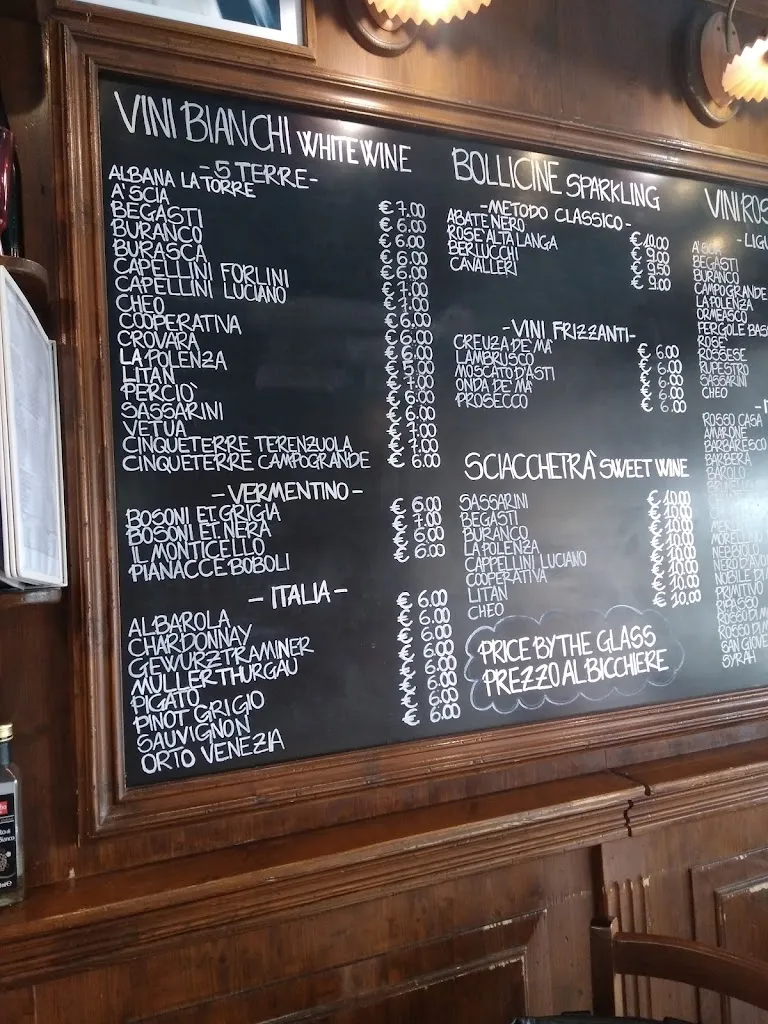 VINI BIANCHI WHITE WINE
- 5 TERRE -
ALBANA LA TORRE € 7.00
A'SCIA € 6.00
BEGASTI € 6.00
BURANCO € 6.00
BURASCA € 6.00
CAPELLINI FORLINI € 7.00
CAPELLINI LUCIANO € 7.00
CHEO € 6.00
COOPERATIVA € 6.00
CROVARA € 6.00
LA POLENZA € 5.00
LITAN € 7.00
PERCIO` € 6.00
SASSARINI € 6.00
VETUA € 7.00
CINQUETERRE TERENZUOLA € 7.00
CINQUETERRE CAMPOGRANDE € 6.00
- VERMENTINO -
BOSONI ET. GRIGIA € 6.00
BOSONI ET. NERA € 7.00
IL MONTICELLO € 6.00
PIANACCE BOBOLI € 6.00
- ITALIA -
ALBAROLA € 6.00
CHARDONNAY € 6.00
GEWURZTRAMINER € 6.00
MULLER THURGAU € 6.00
PIGATO € 6.00
PINOT GRIGIO € 6.00
SAUVIGNON € 6.00
ORTO VENEZIA € 6.00
BOLLICINE SPARKLING
- METODO CLASSICO -
ABATE NERO € 10.00
ROSE' ALTA LANGA € 9.00
BERLUCCHI € 9.50
CAVALLERI € 9.00
- VINI FRIZZANTI -
CREUZA DE MA` € 6.00
LAMBRUSCO € 6.00
MOSCATO D'ASTI € 6.00
ONDA DE MA` € 6.00
PROSECCO € 6.00
SCIACCHETRA` SWEET WINE
SASSARINI € 10.00
BEGASTI € 10.00
BURANCO € 10.00
LA POLENZA € 10.00
CAPPELLINI LUCIANO € 10.00
COOPERATIVA € 10.00
LITAN € 10.00
CHEO € 10.00
PRICE BY THE GLASS
PREZZO AL BICCHIERE
VINI ROS
- LIGU
A'SCIA
BEGASTI
BURANCO
CAMPOGRANDE
LA POLENZA
ORMEASCO
PERGOLE BASS
ROSE'
ROSSESE
RUPESTRO
SASSARINI
CHEO
ROSSO CASA
AMARONE
BARBARESCO
BARBERA
BAROLO
MORELLINO
NEBBIOLO
NERO D'AVO
NOBILE DI M
PRIMITIVO
RIPASSO
ROSSO DI M
ROSSO DI M
SAN GIOVE
SYRAH